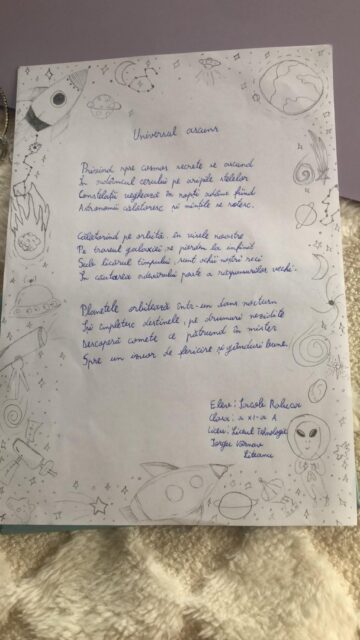 Universul ascuns
Privind spre cosmos secrete se ascund
În adâncimea cerului pe aripile stelelor
Constelații veghează în nopți adânc fiind
Astronomii călătoresc și mințile se rotesc.
Călătorind pe orbită, în visele noastre
Pe traseul galaxiei se pierdem la infinit
Sub licărul timpului, sunt ochii noștri reci
În căutarea adevărului poate a răspunsurilor vechi.
Planetele orbitează într-un dans nocturn
Își împletesc destinele, pe drumuri nezidite
Descoperă comete ce pătrund în mister
Spre un izvor de fericire și gânduri bune.
Elev: Raluca
Clasa: a XI-a A
Liceu: Liceul Tehnologic
Târgu